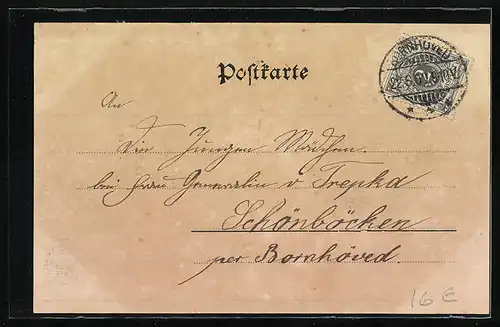 BORNHÖVED
Postkarte
An
Die Jungen Mädchen.
bei Frau Generalin v. Trepka
Schönböcken
per Bornhöved.
16 E